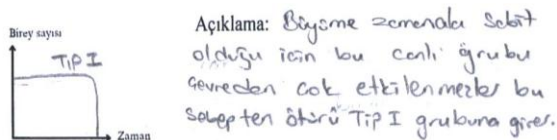 Birey sayısı
TİP I
Zaman
Açıklama: Büyüme zamanala Sabit
olduğu için bu canlı grubu
çevreden çok etkilenmezler bu
Sebepten ötürü TİP I grubuna girer.